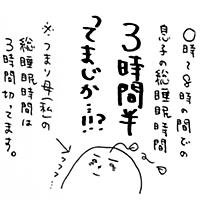 ０時～８時の間での
息子の総睡眠時間
３時間半
ってまじか…!?
※つまり母(私)の
総睡眠時間は
３時間切ってます。
フフフ…